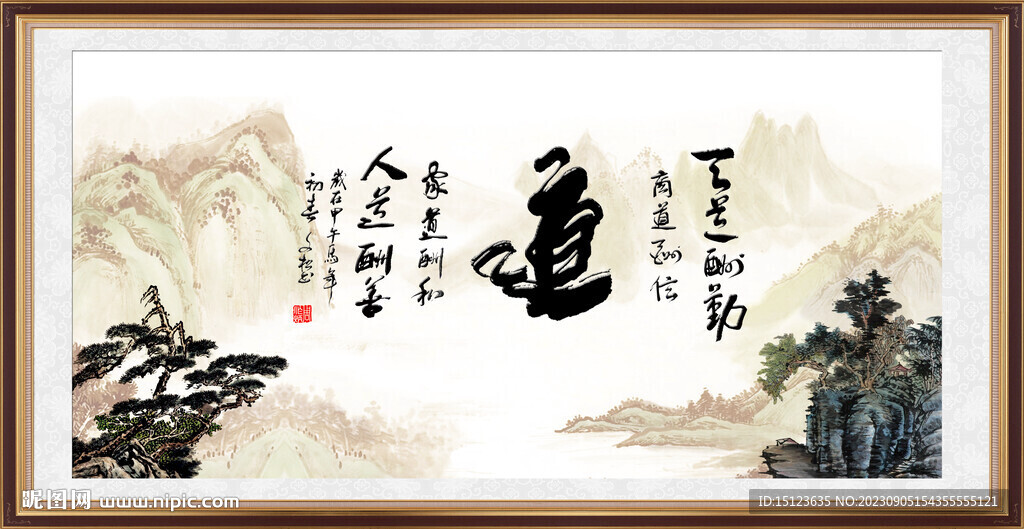 天道酬勤
商道酬信
道
家道酬和
人道酬善
歲在甲午馬年
初春
昵图网 www.nipic.com
ID:15123635 NO:20230905154355555121